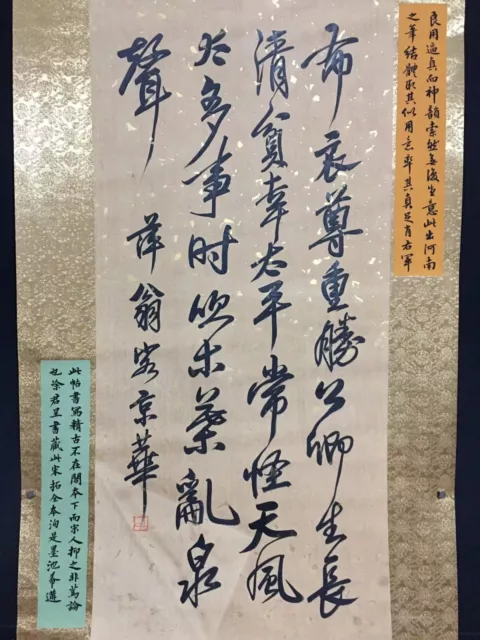 良用逼真而神韻索然無復生意此出河南
之筆結體取其似用意率其真足肖右軍
布衣尊重勝公卿生長
清貧幸太平常怪天風
太多事时吹木葉亂泉
聲 萍翁客京華
此帖書寫精古不在閣本下而宋人抑之非篤論
也徐君呈書藏此宋拓全本洵是墨池希遘